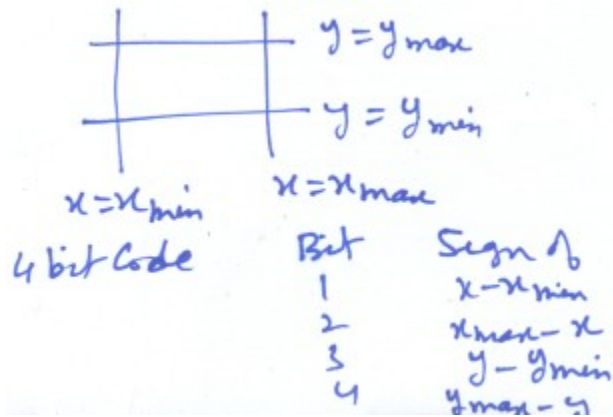 y = y max
y = y min
x = x min x = x max
4 bit Code Bit Sign of
1 x - x min
2 x max - x
3 y - y min
4 y max - y